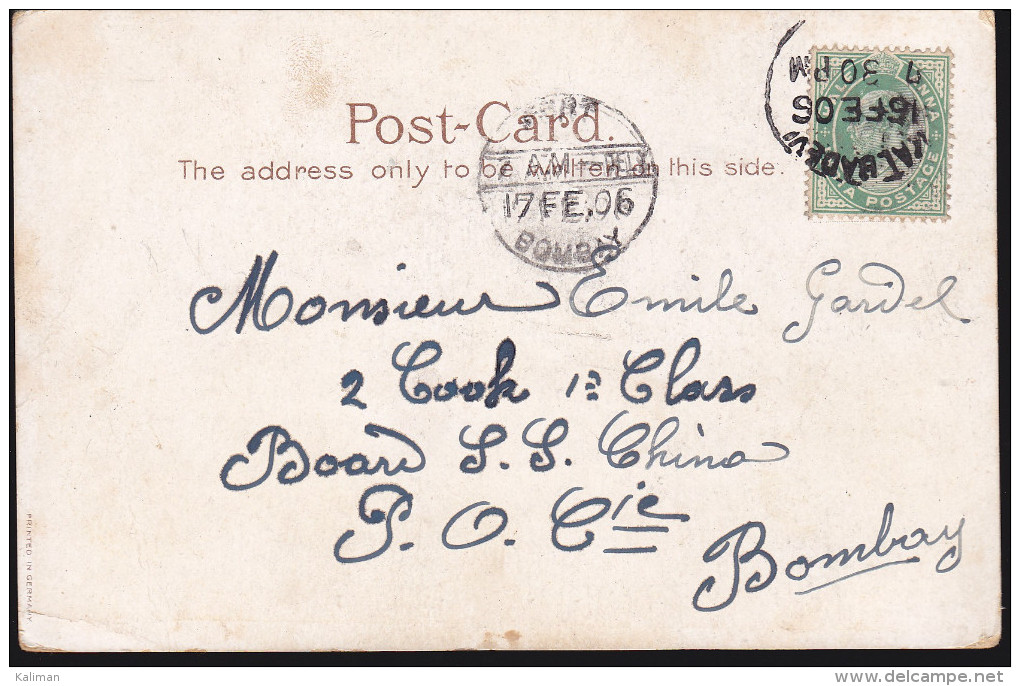 Post-Card.
The address only to be written on this side.
9 30 PM
16 FE.06
ANNA
POSTAGE
AM
17 FE.06
BOMBAY
Monsieur Emile Gardel
2 Cook 1ª Class
Board S. S. China
P. O. Cie
Bombay
PRINTED IN GERMANY
Kaliman
delcampe.net